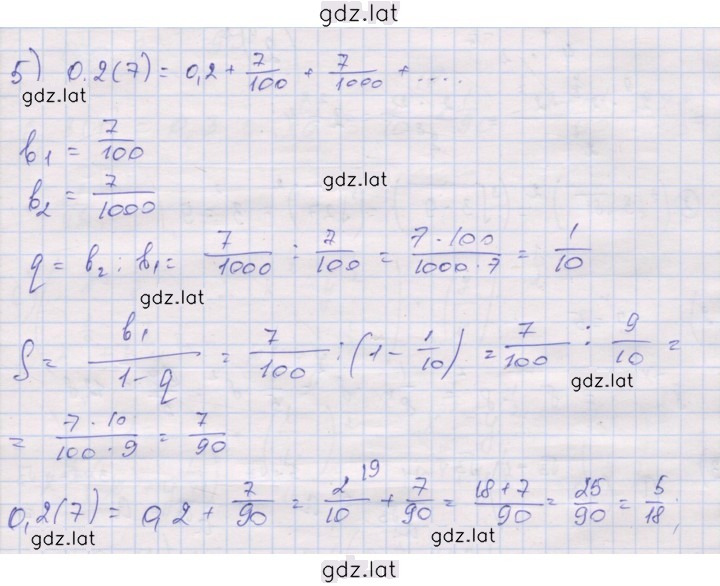 gdz.lat
5) 0.2(7) = 0,2 + 7/100 + 7/1000 + ....
gdz.lat
b₁ = 7/100
gdz.lat
b₂ = 7/1000
q = b₂ : b₁ = 7/1000 : 7/100 = 7·100/1000·7 = 1/10
gdz.lat
S = b₁/1-q = 7/100 : (1 - 1/10) = 7/100 : 9/10 =
gdz.lat
= 7·10/100·9 = 7/90
0,2(7) = 0,2 + 7/90 = 2/10 \9 + 7/90 = 18+7/90 = 25/90 = 5/18;
gdz.lat gdz.lat
gdz.lat